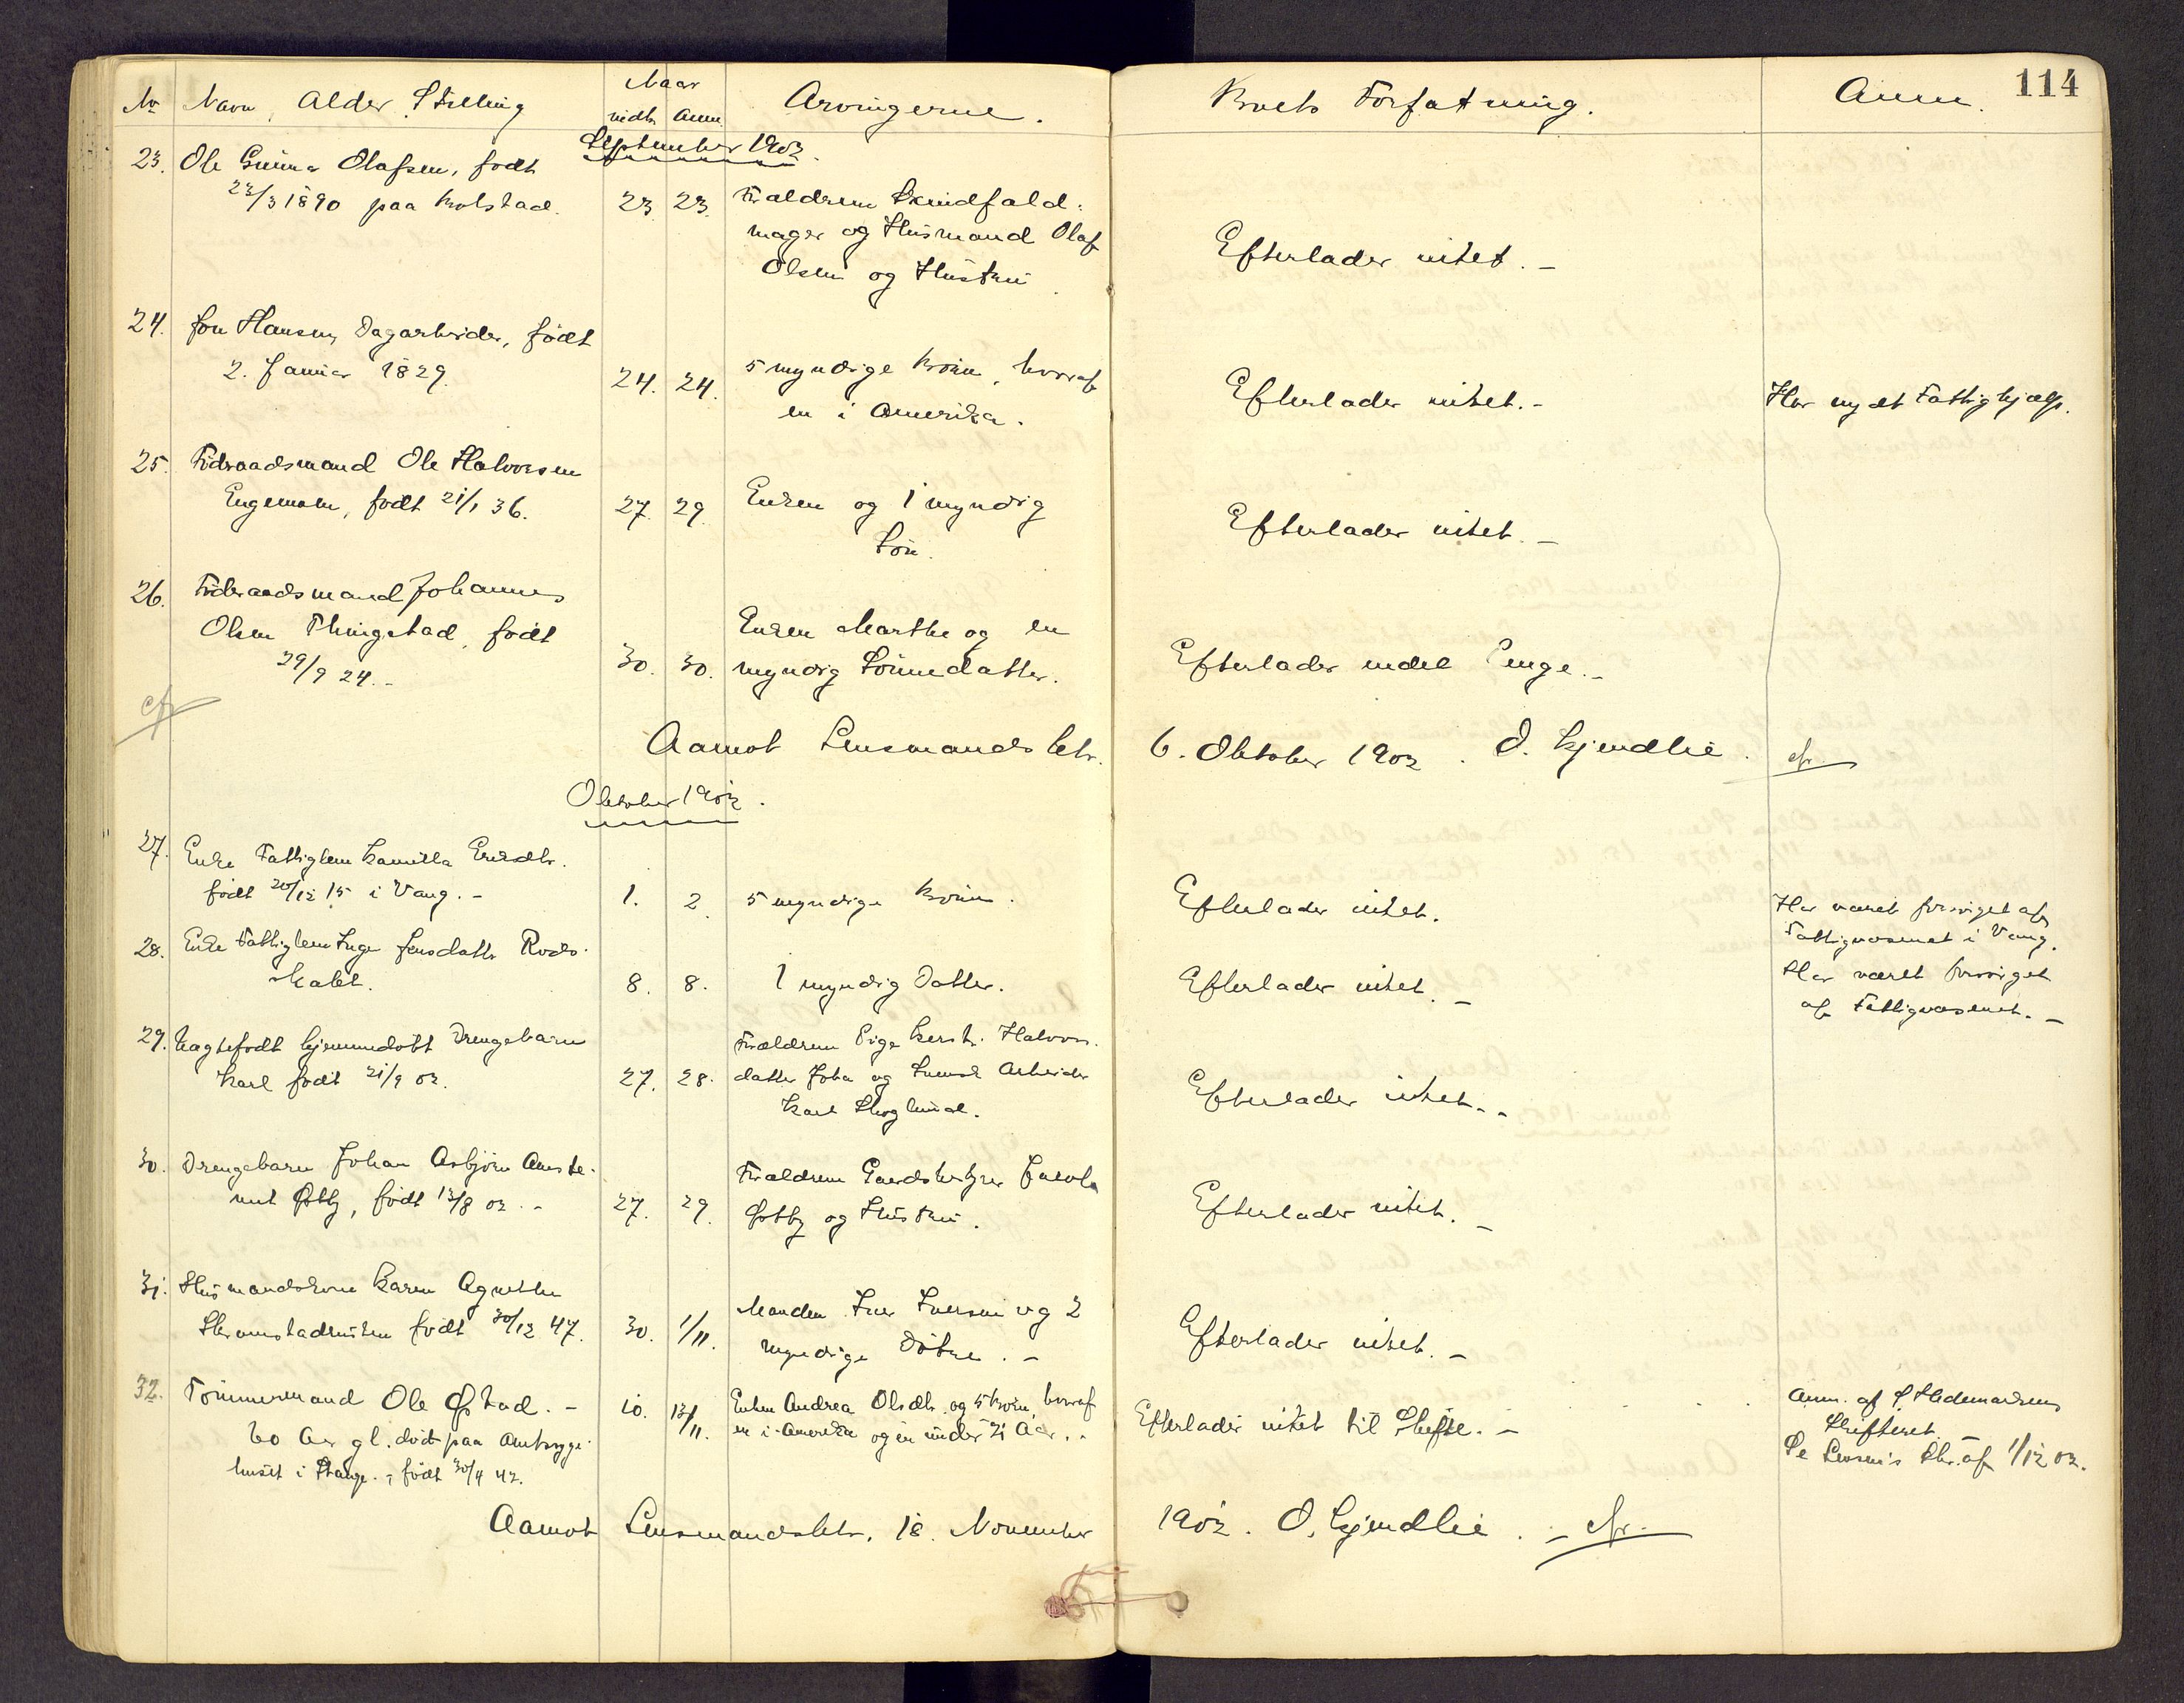 114
No Navn, Alder, Stilling Naar Arvingerne. Boets Forfatning. Anm.
indtr. anm.
September 1902.
23. Ole Gunnar Olafsen, født
23/3 1890 paa Kolstad. 23. 23. Forældrene Skindfæld-
mager og Husmand Olaf
Olsen og Hustru. Efterlader intet. -
24. Jon Hansen, Dagarbeider, født
2. Januar 1829. 24. 24. 5 myndige Børn, hvoraf
en i Amerika. Efterlader intet. - Har nydt Fattighjælp.
25. Føderaadsmand Ole Halvorsen
Engemoen, født 21/1 36. 27. 29. Enken og 1 myndig
Søn. Efterlader intet. -
26. Føderaadsmand Johannes
Olsen Thingstad, født
29/9 24. - 30. 30. Enken Marthe og en
myndig Sønnedatter. Efterlader endel Penge. -
cfr
Aamot Lensmandsbest. 6. Oktober 1902. O. Kjendlie. cfr.
Oktober 1902.
27. Enke Fattiglem Kamilla Eriksdtr.
født 20/12 15 i Vang. - 1. 2. 5 myndige Børn. Efterlader intet. Har været forsørget af
Fattigvæsenet i Vang.
28. Enke Fattiglem Inge Jensdatter Rods-
bakk. 8. 8. 1 myndig Datter. Efterlader intet. - Har været forsørget
af Fattigvæsenet. -
29. Uægtefødt hjemmedøbt Drengebarn
Karl født 21/9 02. 27. 28. Forældrene Pige Halvors-
datter og Arbeider
Karl Skoglund. Efterlader intet. -
30. Drengebarn Johan Asbjørn
Østby, født 13/8 02. - 27. 29. Forældrene Gaardbestyrer Jacob
Østby og Hustru. Efterlader intet. -
31. Husmandskone Karen Agnethe
født 30/12 47. 30. 1/11. Manden Iver Iversen og 2
myndige Døtre. - Efterlader intet. -
32. Tømmermand Ole Østad. - 10. 13/11. Enken Andrea Olsdtr. og 5 Børn, hvoraf
60 Aar gl. død paa Amtssyge-
huset i Stange. - født 30/4 42. en i Amerika og en under 21 Aar. - Efterlader intet til Skifte. - Anm. af S. Hedemarkens
Skifteret.
Se Skr. af 1/12 02.
Aamot Lensmandsbest. 18. November 1902. O. Kjendlie. - cfr.